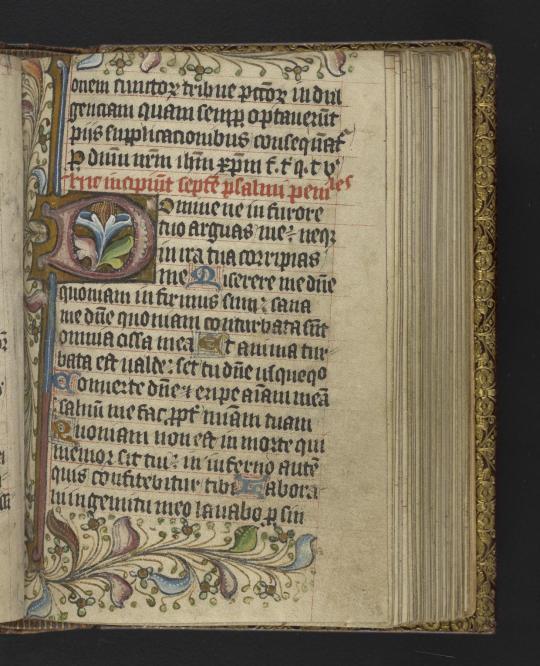 onem cunctoꝝ tribue pctōꝝ in dul
genciam quam semꝑ optauerūt
pijs supplicacionibus consequāt᷑
ꝑ dnm nrm ihm xpm f. t᷑ q. t v
Hic incipiūt septē psalmi peniales
Domine ne in furore
tuo arguas me: neqꝫ
in ira tua corripias
me Miserere me dne
quoniam infirmus sum: sana
me dne quoniam conturbata sūt
omnia ossa mea Et anima tur
bata est ualde: set tu dne usquequo
Conuerte dne ⁊ eripe aīam meā
saluū me fac ppt mīam tuam
Quoniam non est in morte qui
memor sit tui: in inferno autē
quis confitebitur tibi Labora
ui in gemitu meo lauabo ꝑ sin